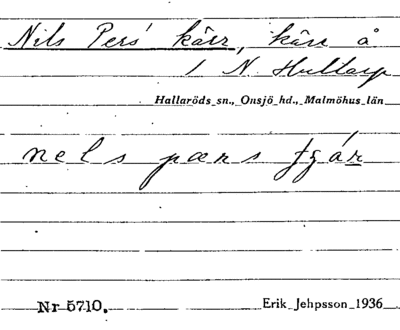 Nils Pers' kärr, käre å
1 N. Hultarp
Hallaröds sn., Onsjö hd., Malmöhus län
nels pærs
Nr 5710.
Erik Jehpsson 1936